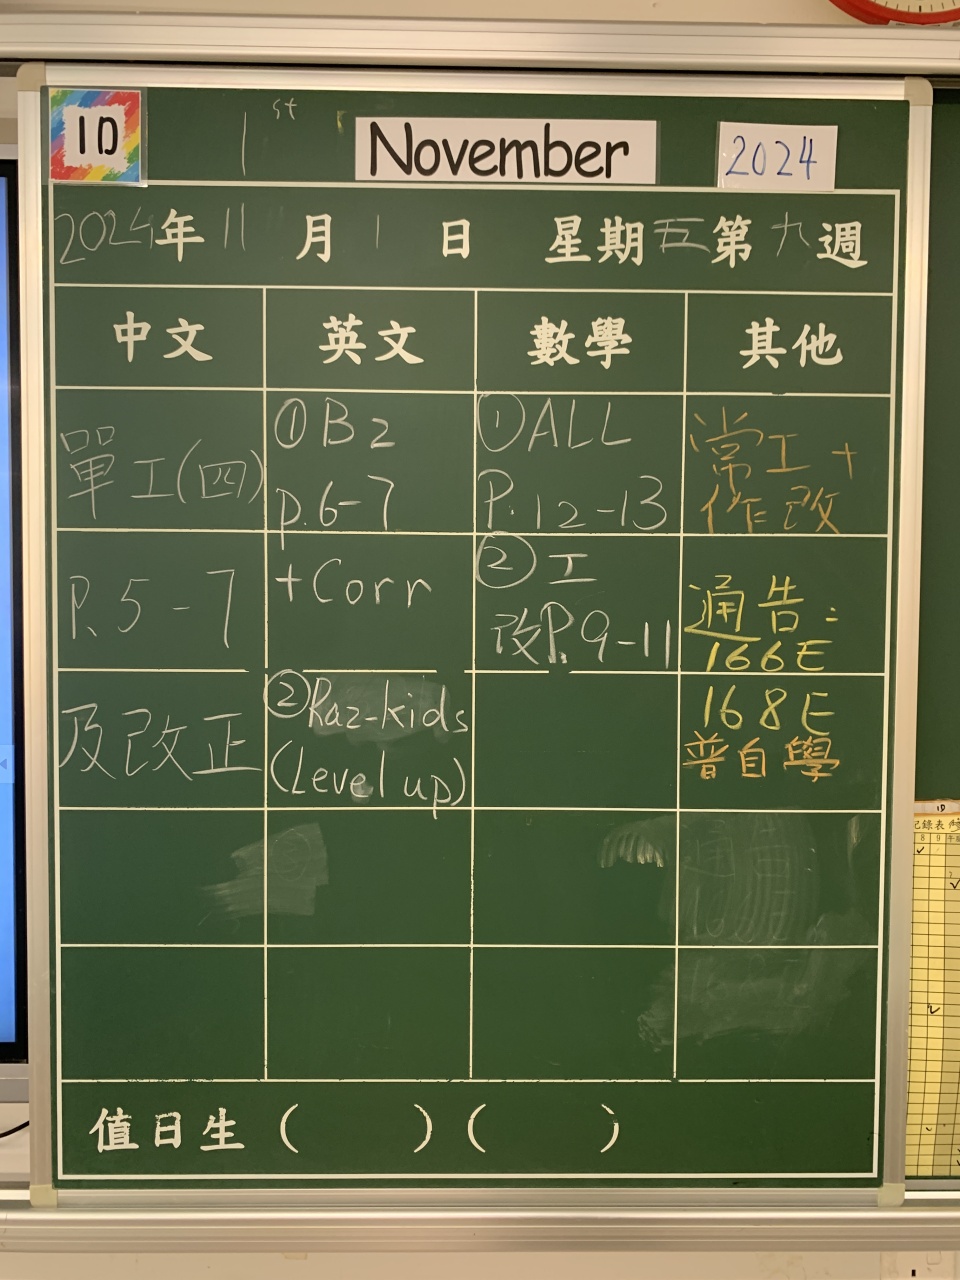 1D 1st November 2024
2024年11月1日 星期五第九週
中文 英文 數學 其他
單工(四)
P.5-7
及改正
①B2
p.6-7
+Corr
②Raz-kids
(Level up)
①ALL
P.12-13
②工
改P.9-11
常工+
作改
通告:
166E
168E
普自學
值日生( )( )
1D
記錄表
8 9